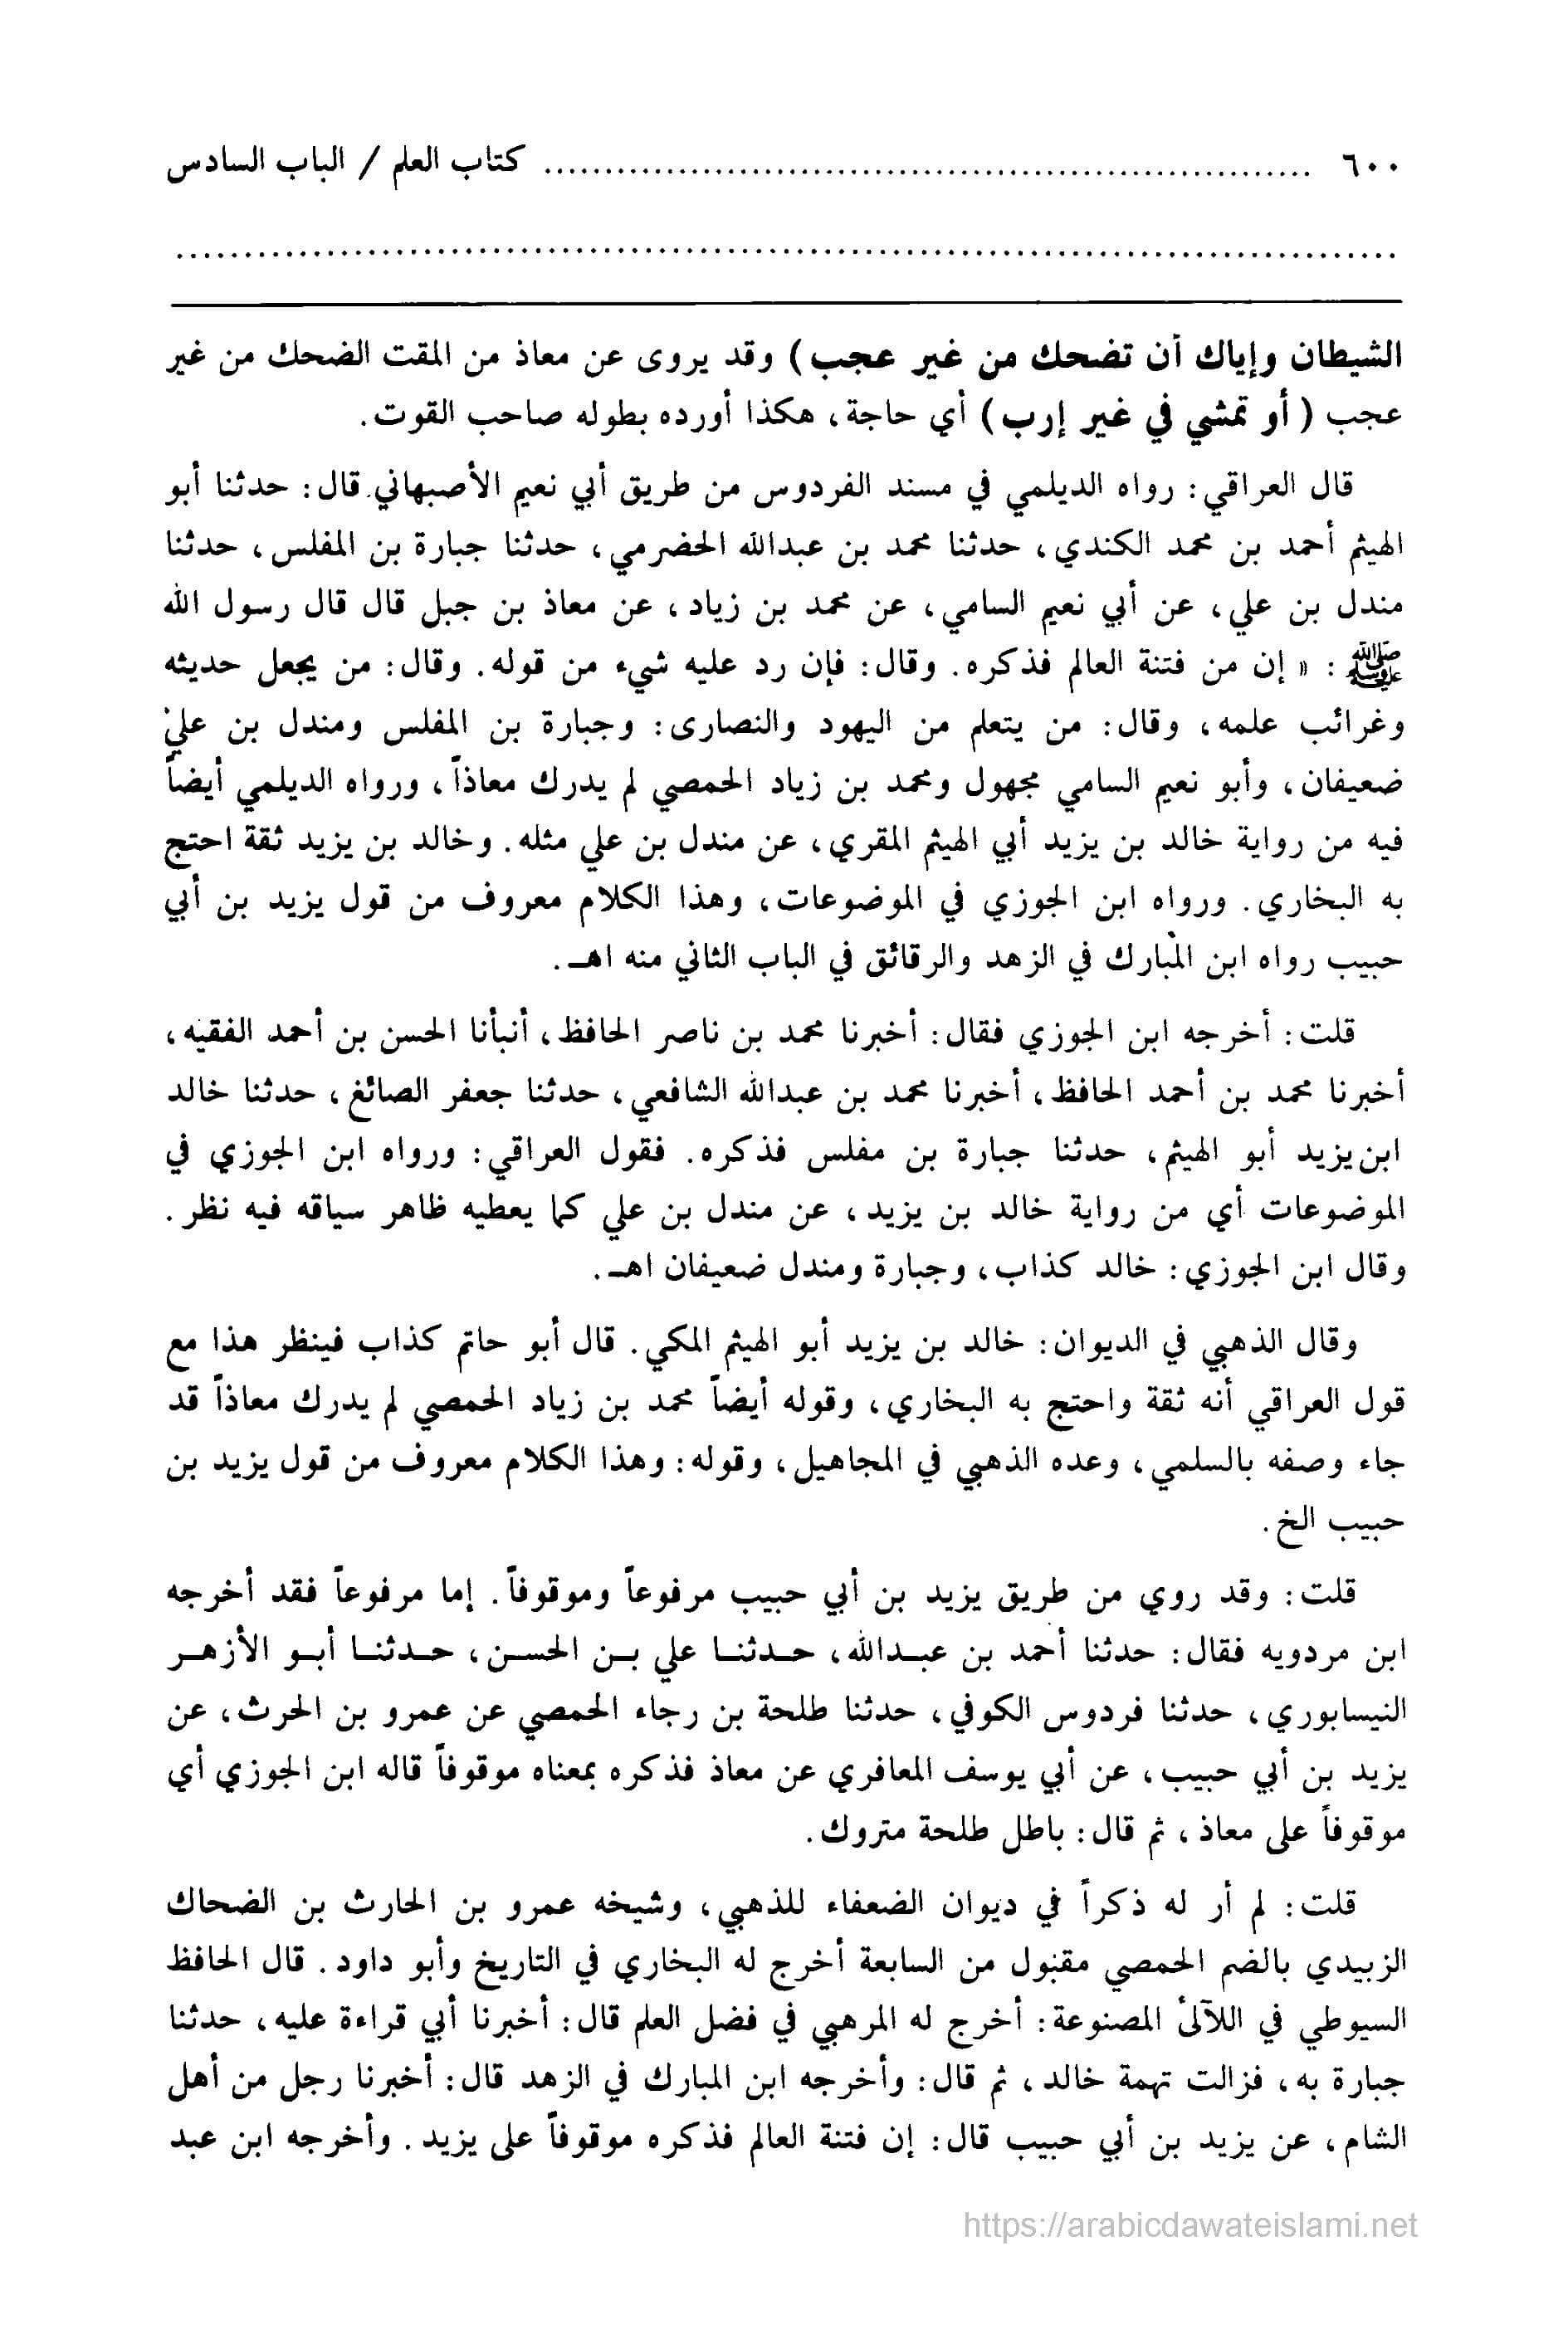 ٦٠٠ ................................................................ كتاب العلم / الباب السادس
................................................................................................
الشيطان وإياك أن تضحك من غير عجب) وقد يروى عن معاذ من المقت الضحك من غير
عجب (أو تمشي في غير إرب) أي حاجة، هكذا أورده بطوله صاحب القوت.
قال العراقي: رواه الديلمي في مسند الفردوس من طريق أبي نعيم الأصبهاني قال: حدثنا أبو
الهيثم أحمد بن محمد الكندي، حدثنا محمد بن عبدالله الحضرمي، حدثنا جبارة بن المفلس، حدثنا
مندل بن علي، عن أبي نعيم السامي، عن محمد بن زياد، عن معاذ بن جبل قال قال رسول الله
ﷺ: « إن من فتنة العالم فذكره. وقال: فإن رد عليه شيء من قوله. وقال: من يجعل حديثه
وغرائب علمه، وقال: من يتعلم من اليهود والنصارى: وجبارة بن المفلس ومندل بن علي
ضعيفان، وأبو نعيم السامي مجهول ومحمد بن زياد الحمصي لم يدرك معاذاً، ورواه الديلمي أيضاً
فيه من رواية خالد بن يزيد أبي الهيثم المقري، عن مندل بن علي مثله. وخالد بن يزيد ثقة احتج
به البخاري. ورواه ابن الجوزي في الموضوعات، وهذا الكلام معروف من قول يزيد بن أبي
حبيب رواه ابن المبارك في الزهد والرقائق في الباب الثاني منه اهـ.
قلت: أخرجه ابن الجوزي فقال: أخبرنا محمد بن ناصر الحافظ، أنبأنا الحسن بن أحمد الفقيه،
أخبرنا محمد بن أحمد الحافظ، أخبرنا محمد بن عبدالله الشافعي، حدثنا جعفر الصائغ، حدثنا خالد
ابن يزيد أبو الهيثم، حدثنا جبارة بن مفلس فذكره. فقول العراقي: ورواه ابن الجوزي في
الموضوعات أي من رواية خالد بن يزيد، عن مندل بن علي كما يعطيه ظاهر سياقه فيه نظر.
وقال ابن الجوزي: خالد كذاب، وجبارة ومندل ضعيفان اهـ.
وقال الذهبي في الديوان: خالد بن يزيد أبو الهيثم المكي. قال أبو حاتم كذاب فينظر هذا مع
قول العراقي أنه ثقة واحتج به البخاري، وقوله أيضاً محمد بن زياد الحمصي لم يدرك معاذاً قد
جاء وصفه بالسلمي، وعده الذهبي في المجاهيل، وقوله: وهذا الكلام معروف من قول يزيد بن
حبيب الخ.
قلت: وقد روي من طريق يزيد بن أبي حبيب مرفوعاً وموقوفاً. إما مرفوعاً فقد أخرجه
ابن مردويه فقال: حدثنا أحمد بن عبدالله، حدثنا علي بن الحسن، حدثنا أبو الأزهر
النيسابوري، حدثنا فردوس الكوفي، حدثنا طلحة بن رجاء الحمصي عن عمرو بن الحرث، عن
يزيد بن أبي حبيب، عن أبي يوسف المعافري عن معاذ فذكره بمعناه موقوفاً قاله ابن الجوزي أي
موقوفاً على معاذ، ثم قال: باطل طلحة متروك.
قلت: لم أر له ذكراً في ديوان الضعفاء للذهبي، وشيخه عمرو بن الحارث بن الضحاك
الزبيدي بالضم الحمصي مقبول من السابعة أخرج له البخاري في التاريخ وأبو داود. قال الحافظ
السيوطي في اللآلئ المصنوعة: أخرج له المرهبي في فضل العلم قال: أخبرنا أبي قراءة عليه، حدثنا
جبارة به، فزالت تهمة خالد، ثم قال: وأخرجه ابن المبارك في الزهد قال: أخبرنا رجل من أهل
الشام، عن يزيد بن أبي حبيب قال: إن فتنة العالم فذكره موقوفاً على يزيد. وأخرجه ابن عبد
https://arabicdawateislami.net